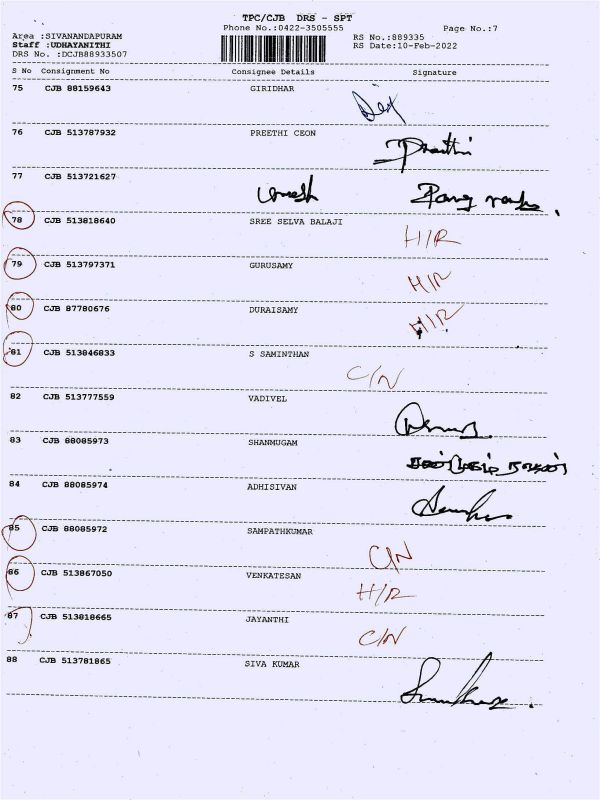 TPC/CJB DRS - SPT
Phone No.:0422-3505555
Page No.:7
Area :SIVANANDAPURAM
RS No.:889335
Staff :UDHAYANITHI
RS Date:10-Feb-2022
DRS No. :DCJB88933507
S No Consignment No Consignee Details Signature
75 CJB 88159643 GIRIDHAR
76 CJB 513787932 PREETHI CEON
Preethi
77 CJB 513721627
Umesh
78 CJB 513818640 SREE SELVA BALAJI
H/R
79 CJB 513797371 GURUSAMY
H/R
80 CJB 87780676 DURAISAMY
H/R
81 CJB 513846833 S SAMINTHAN
C/N
82 CJB 513777559 VADIVEL
83 CJB 88085973 SHANMUGAM
84 CJB 88085974 ADHISIVAN
85 CJB 88085972 SAMPATHKUMAR
C/N
86 CJB 513867050 VENKATESAN
H/R
87 CJB 513818665 JAYANTHI
C/N
88 CJB 513781865 SIVA KUMAR